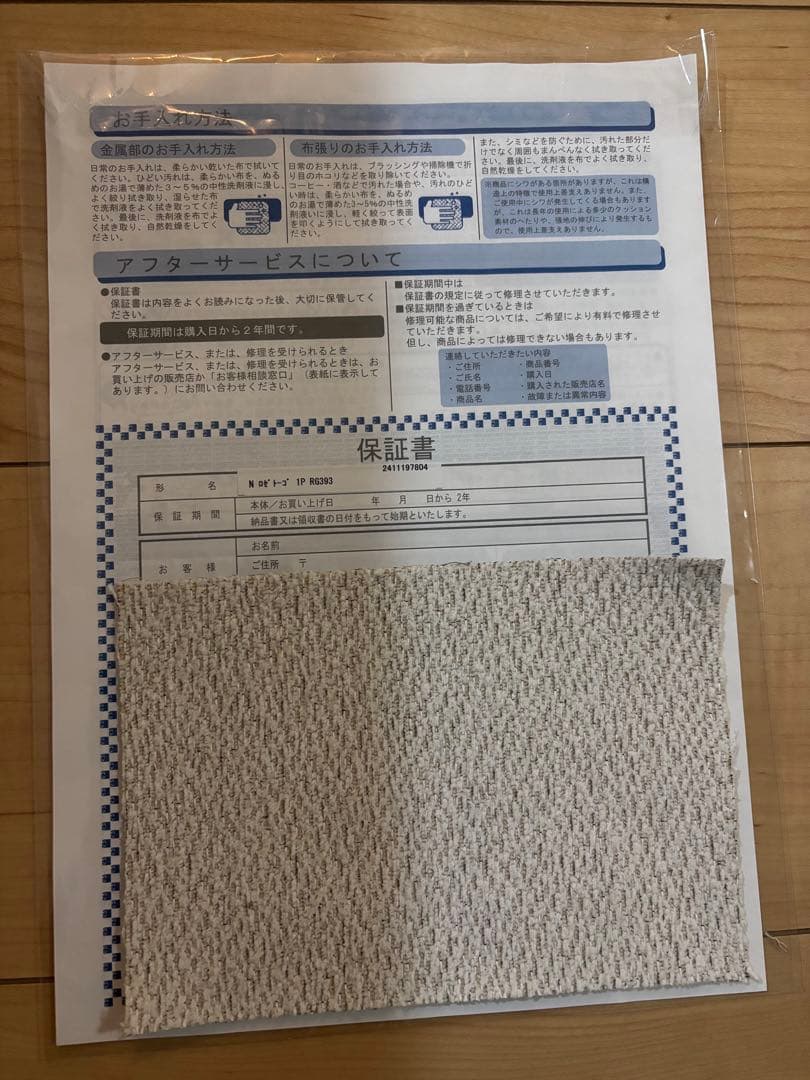 お手入れ方法
金属部のお手入れ方法
日常のお手入れは、柔らかい乾いた布で拭いて
ください。ひどい汚れは、柔らかい布を、ぬる
めのお湯で薄めた3～5％の中性洗剤液に浸し、
よく絞り拭き取り、湿らせた布
で洗剤液をよく拭き取ってくだ
さい。最後に、洗剤液を布でよ
く拭き取り、自然乾燥をしてく
ださい。
布張りのお手入れ方法
日常のお手入れは、ブラッシングや掃除機で折
り目のホコリなどを取り除いてください。
コーヒー・酒などで汚れた場合や、汚れのひど
い時は、柔らかい布を、ぬるめ
のお湯で薄めた3~5%の中性洗
剤液に浸し、軽く絞って表面
を叩くようにして拭き取ってく
ださい。
また、シミなどを防ぐために、汚れた部分だ
けでなく周囲もまんべんなく拭き取ってくだ
さい。最後に、洗剤液を布でよく拭き取り、
自然乾燥をしてください。
※商品にシワがある箇所がありますが、これは構
造上の特徴で使用上差支えありません。また、
ご使用中にシワが発生してくる場合もあります
が、これは長年の使用による多少のクッション
素材のへたりや、張地の伸びにより発生するも
ので、使用上差支えありません。
アフターサービスについて
●保証書
保証書は内容をよくお読みになった後、大切に保管してく
ださい。
保証期間は購入日から２年間です。
●アフターサービス、または、修理を受けられるとき
アフターサービス、または、修理を受けられるときは、お
買い上げの販売店か「お客様相談窓口」（表紙に表示して
あります。）にお問い合わせください。
■保証期間中は
保証書の規定に従って修理させていただきます。
■保証期間を過ぎているときは
修理可能な商品については、ご希望により有料で修理させ
ていただきます。
但し、商品によっては修理できない場合もあります。
連絡していただきたい内容
・ご住所
・ご氏名
・電話番号
・商品名
・商品番号
・購入日
・購入された販売店名
・故障または異常内容
保証書
2411197804
形 名
N ﾛｾﾞﾄｰｺﾞ 1P RG393
保証期間
本体／お買い上げ日 年 月 日から 2年
納品書又は領収書の日付をもって始期といたします。
お客様
お名前
ご住所 〒